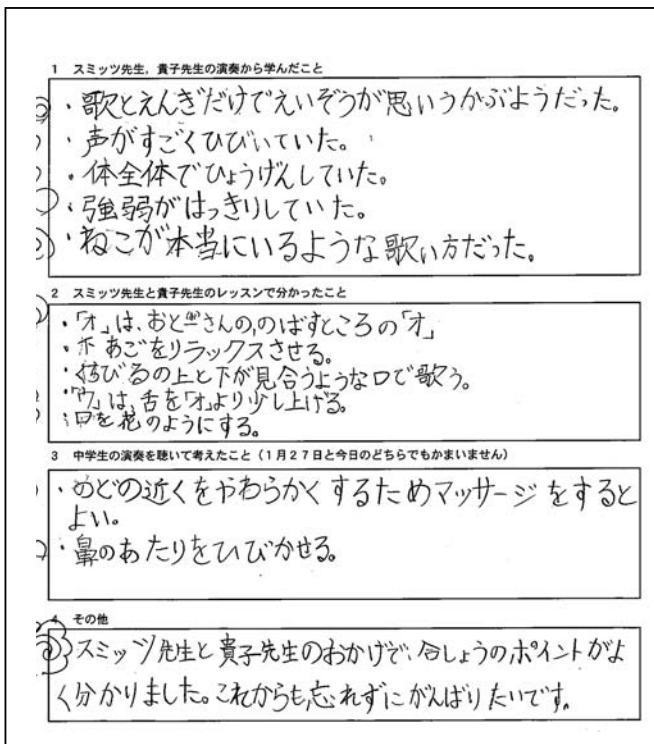 1 スミッツ先生，貴子先生の演奏から学んだこと
・歌とえんぎだけでえいぞうが思いうかぶようだった。
・声がすごくひびいていた。
・体全体でひょうげんしていた。
・強弱がはっきりしていた。
・ねこが本当にいるような歌い方だった。
2 スミッツ先生と貴子先生のレッスンで分かったこと
・「オ」は、おとうさんの,のばすところの「オ」
・下あごをリラックスさせる。
・くちびるの上と下が見合うような口で歌う。
・「ウ」は、舌を「オ」より少し上げる。
・口を花のようにする。
3 中学生の演奏を聴いて考えたこと（1月27日と今日のどちらでもかまいません）
・のどの近くをやわらかくするためマッサージをすると
よい。
・鼻のあたりをひびかせる。
4 その他
スミッツ先生と貴子先生のおかげで、合しょうのポイントがよ
く分かりました。これからも忘れずにがんばりたいです。